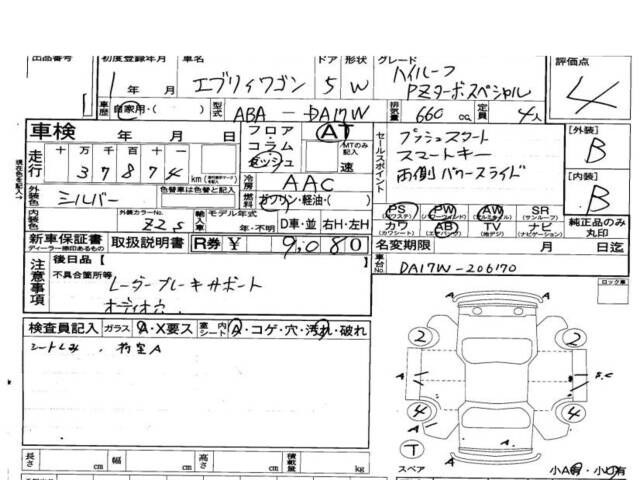 出品番号 初度登録年月 車名 ドア 形状 グレード 評価点
1年 月 エブリィワゴン 5 W ハイルーフ
PZターボスペシャル 4
車歴 自家用・( ) 型式 ABA-DA17W 排気量 660 cc 定員 4人
車検 年 月 日 フロア・コラム・ダッシュ AT MTのみ記入 速
セールスポイント プッシュスタート
スマートキー
両側パワースライド
[外装] B
[内装] B
走行 十 万 千 百 十
3 7 8 7 4 km
外装色 シルバー 色替車は色替と記入
冷房 AAC
燃料 ガソリン・軽油・( )
内装色 外装カラーNo. Z2S 輸入車 モデル年式 年・不明 D車・並 右H・左H
PS AW SR
カワ AB TV ナビ
純正品のみ丸印
新車保証書 取扱説明書 R券 ¥ 9,080
ディーラー捺印あるもの
名変期限 月 日迄
注意事項 後日品 [ ]
不具合箇所等
レーダーブレーキサポート
オーディオ穴
車台No. DA17W-206170
ロック車
検査員記入 ガラス A・X要ス 室内シート A・コゲ・穴・汚れ・破れ
シートしみ.
2 2
A A
4 4
A A
T
スペア
長さ cm 幅 cm 高さ cm 積載量 kg